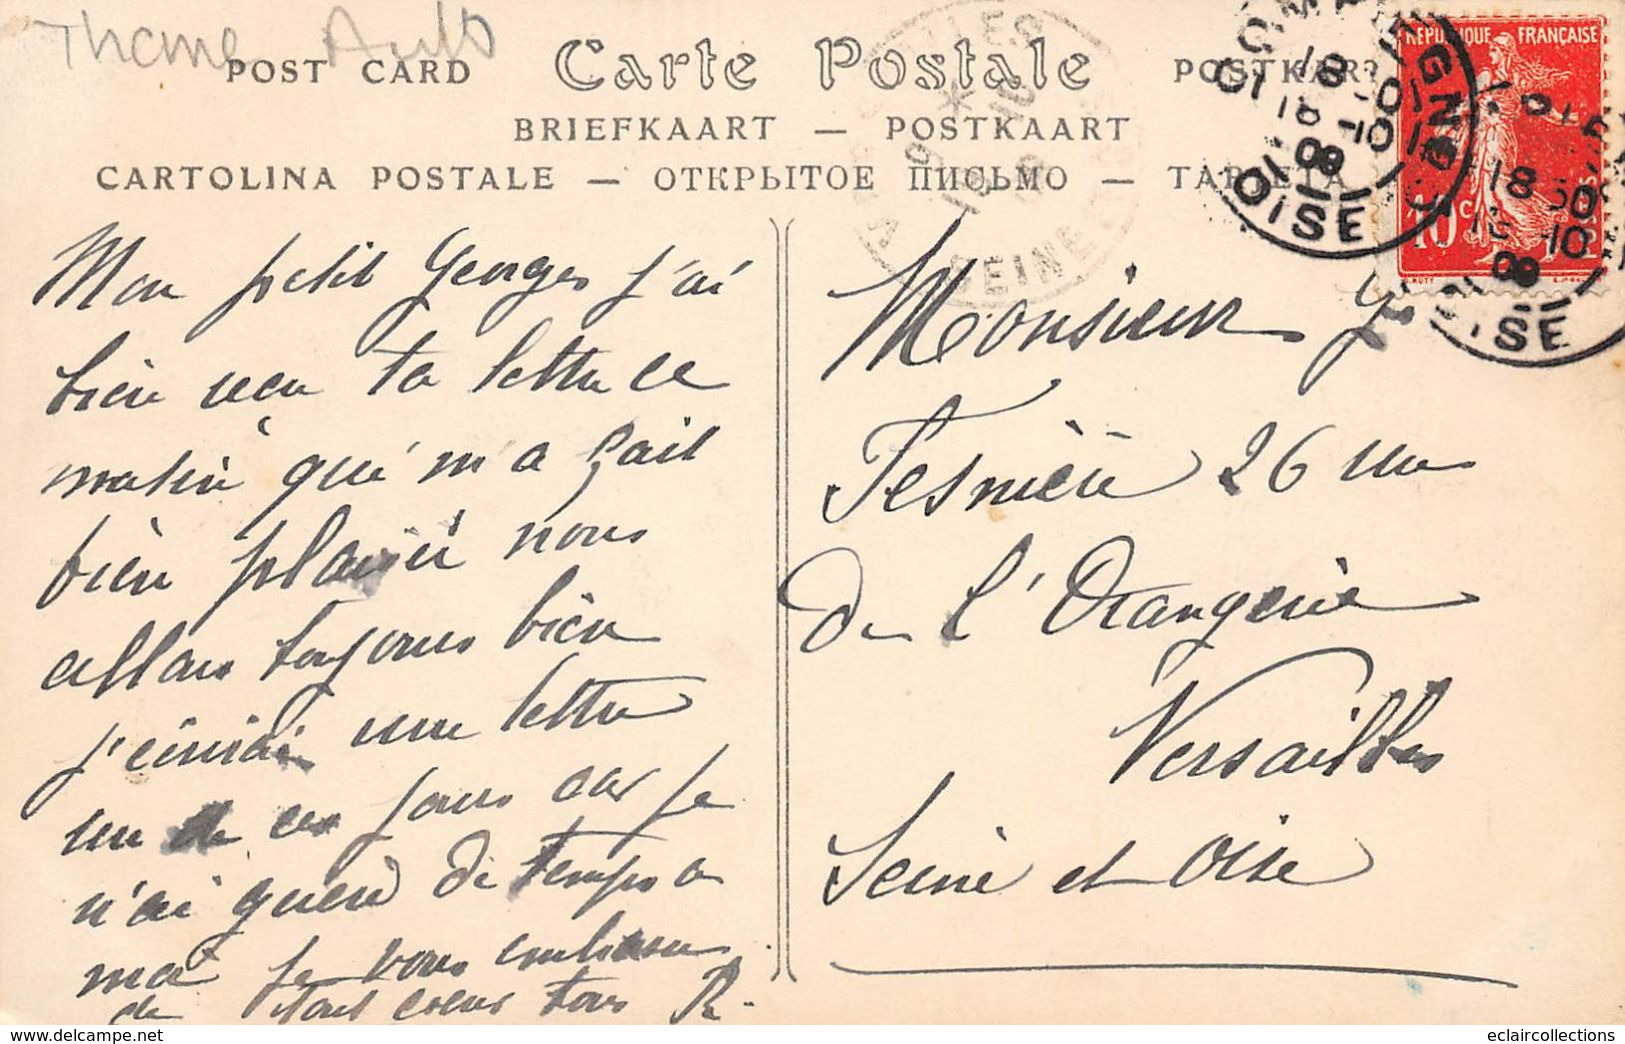 Theme Auto
POST CARD Carte Postale POSTKAR
BRIEFKAART — POSTKAART
CARTOLINA POSTALE — ОТКРЫТОЕ ПИСЬМО — TARJETA
REPUBLIQUE FRANÇAISE
10 c
OISE
18 -10
08
OISE
18
-10
08
SEINE
Mon petit Georges j'ai
bien recu ta lettre ce
matin qui m'a fait
bien plaisir nous
allons toujours bien
j'écrirai une lettre
un de ces jours car je
n'ai guere di temps a
moi je vous embrasse
de tout coeur tous R.
Monsieur G
Fesnière 26 rue
De L'Orangerie
Versailles
Seine et Oise
eclaircollections